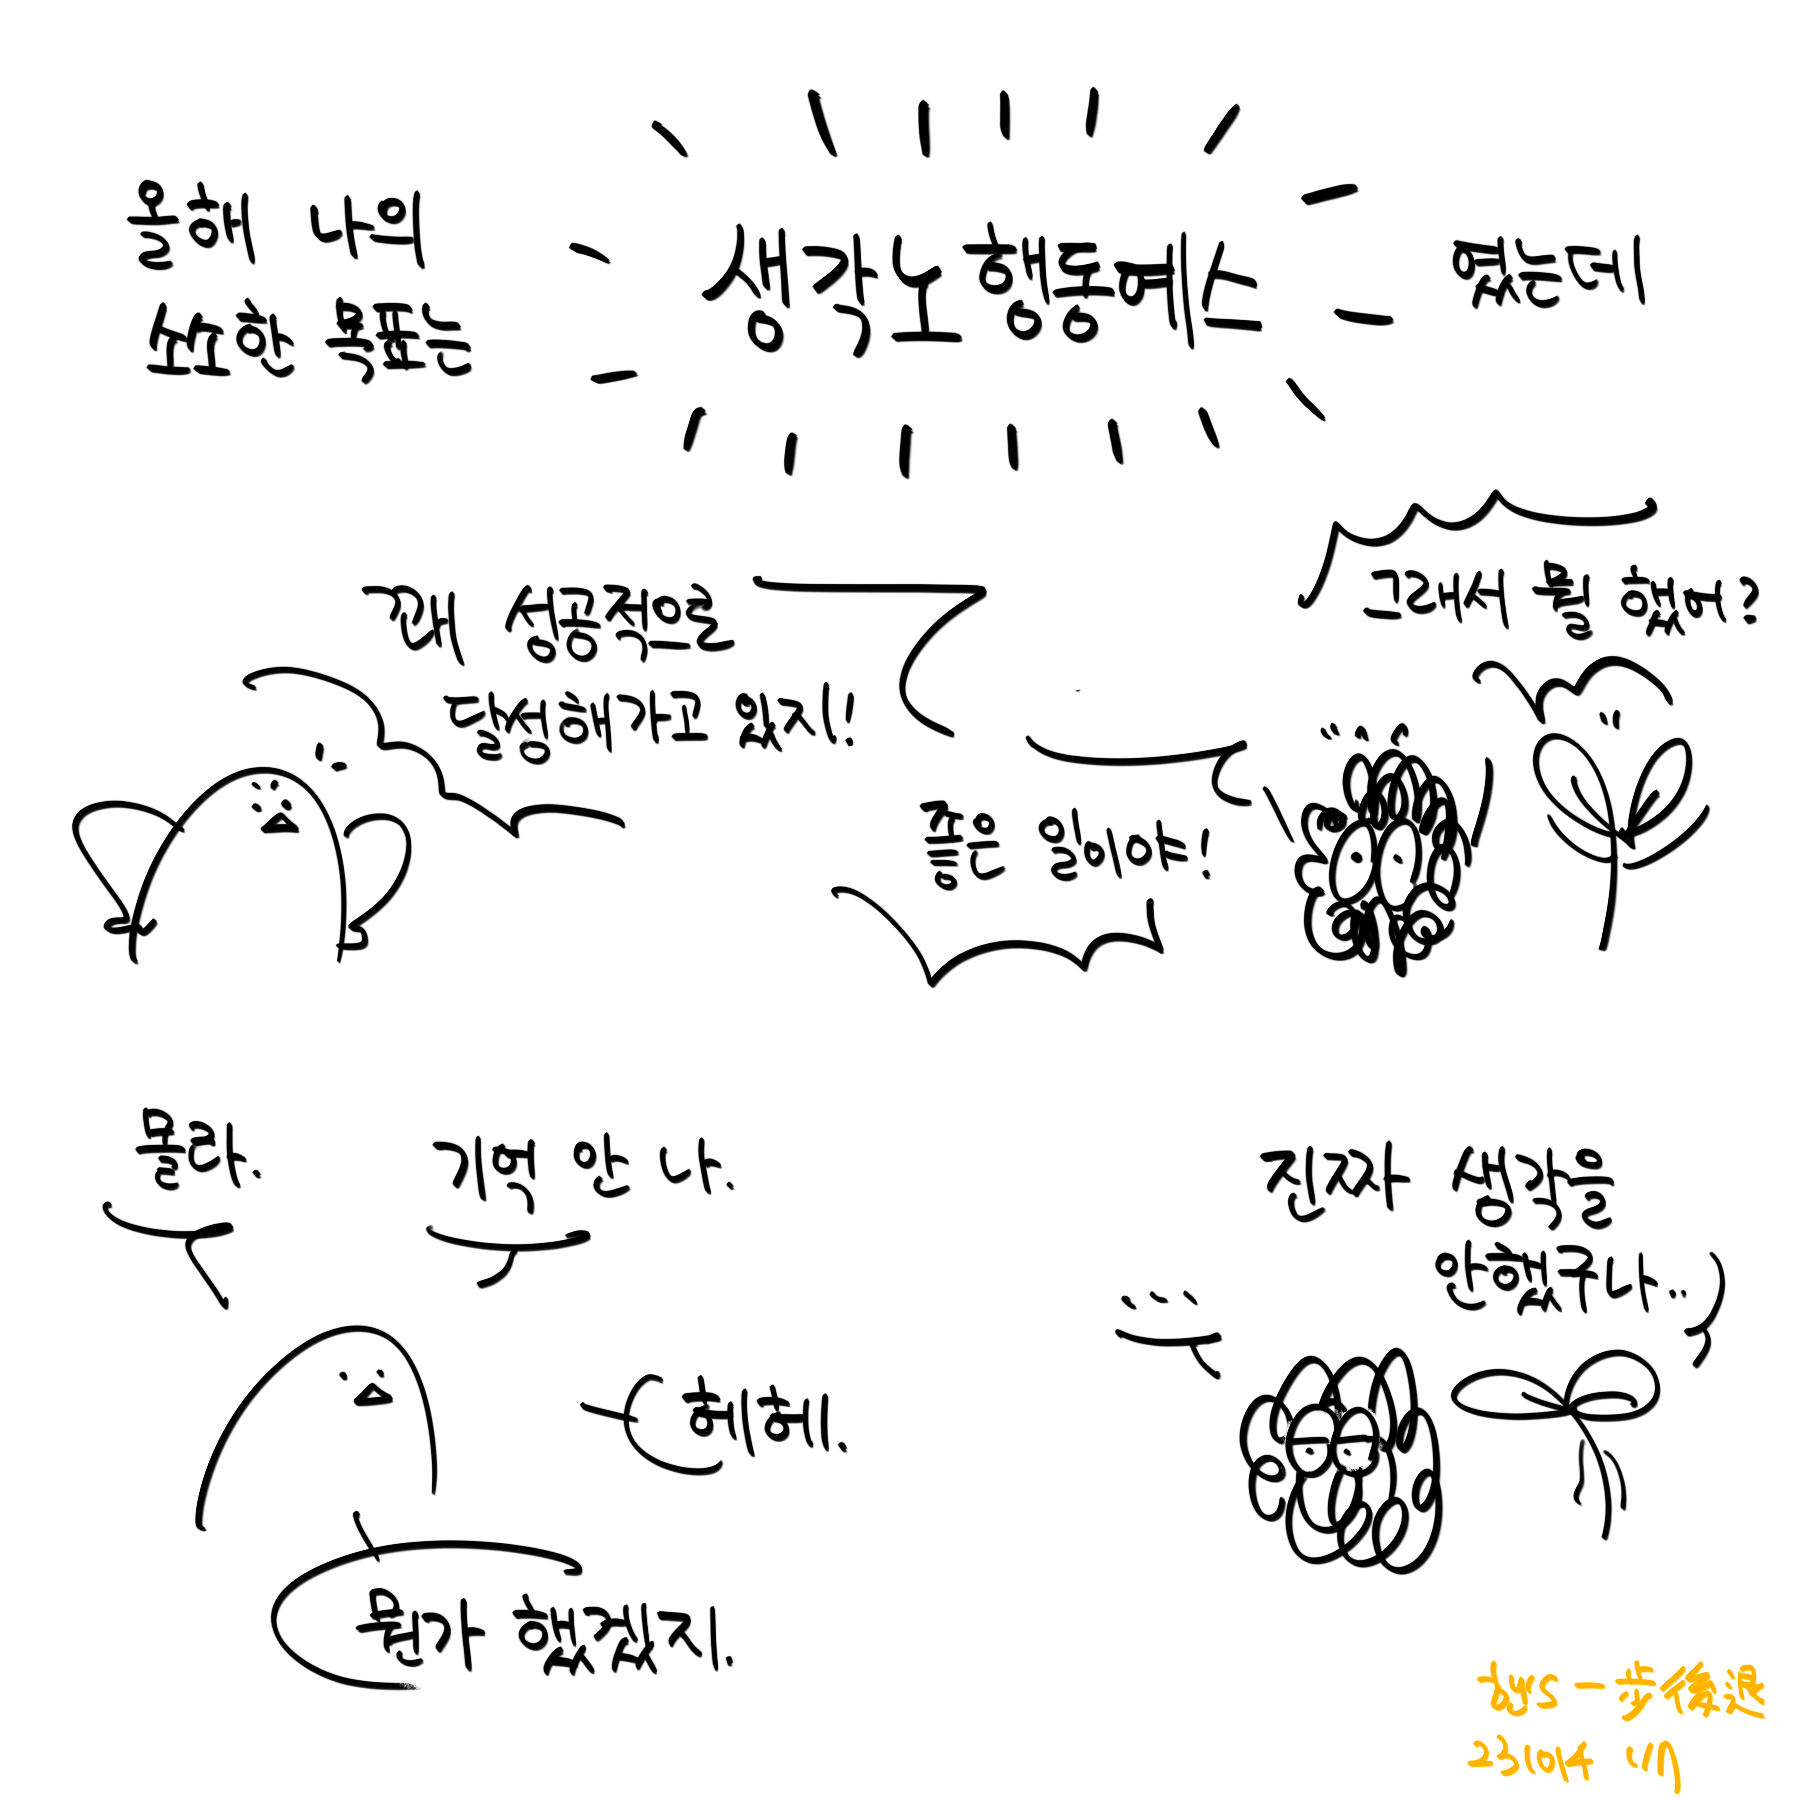 올해 나의
소소한 목표는
생각노행동예스
였는데
꽤 성공적으로
달성해가고 있지!
그래서 뭘 했어?
좋은 일이야!
몰라.
기억 안 나.
헤헤.
뭔가 했겠지.
진짜 생각을
안했구나..
一步後退
231014